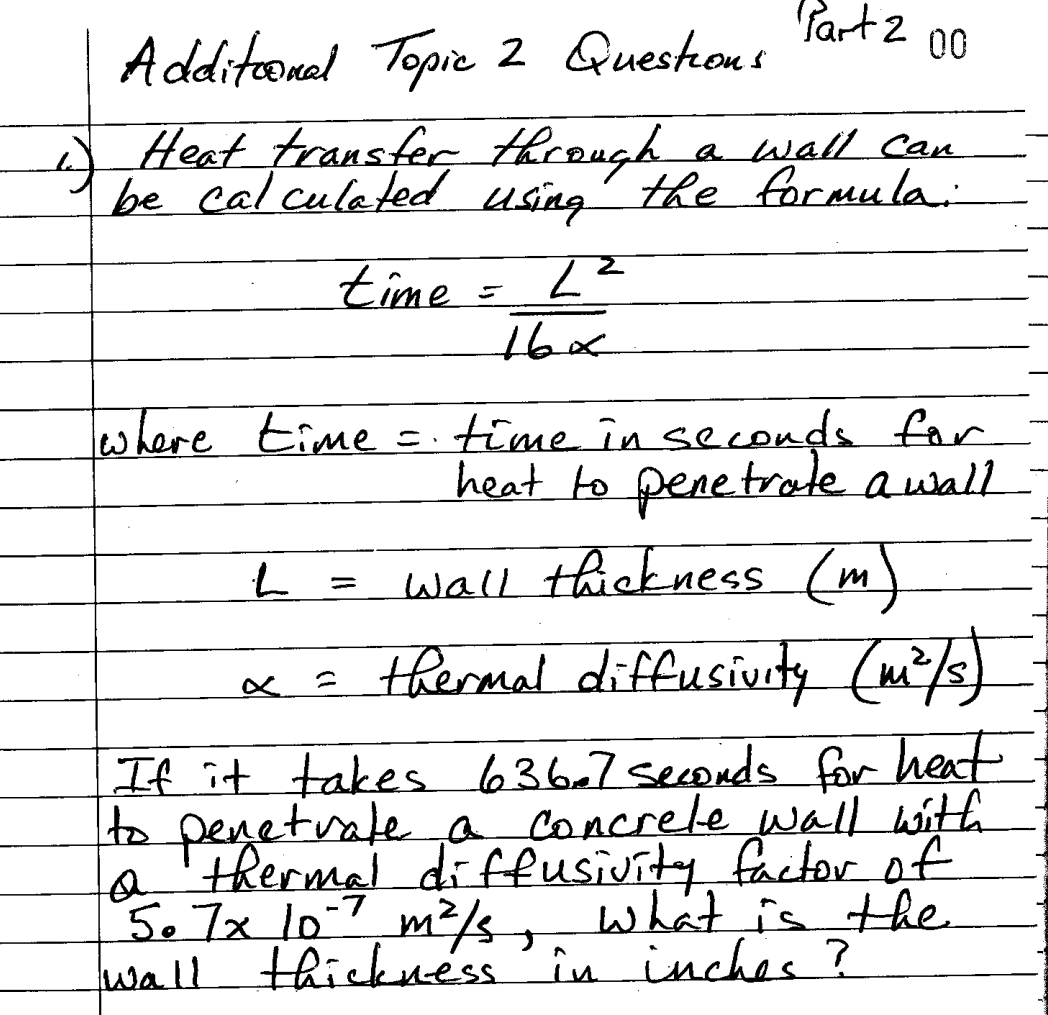 Part 2
Additional Topic 2 Questions 00
1.) Heat transfer through a wall can
be calculated using the formula:
time = L²
16α
where time = time in seconds for
heat to penetrate a wall
L = wall thickness (m)
α = thermal diffusivity (m²/s)
If it takes 636.7 seconds for heat
to penetrate a concrete wall with
a thermal diffusivity factor of
5.7x 10⁻⁷ m²/s, what is the
wall thickness in inches?